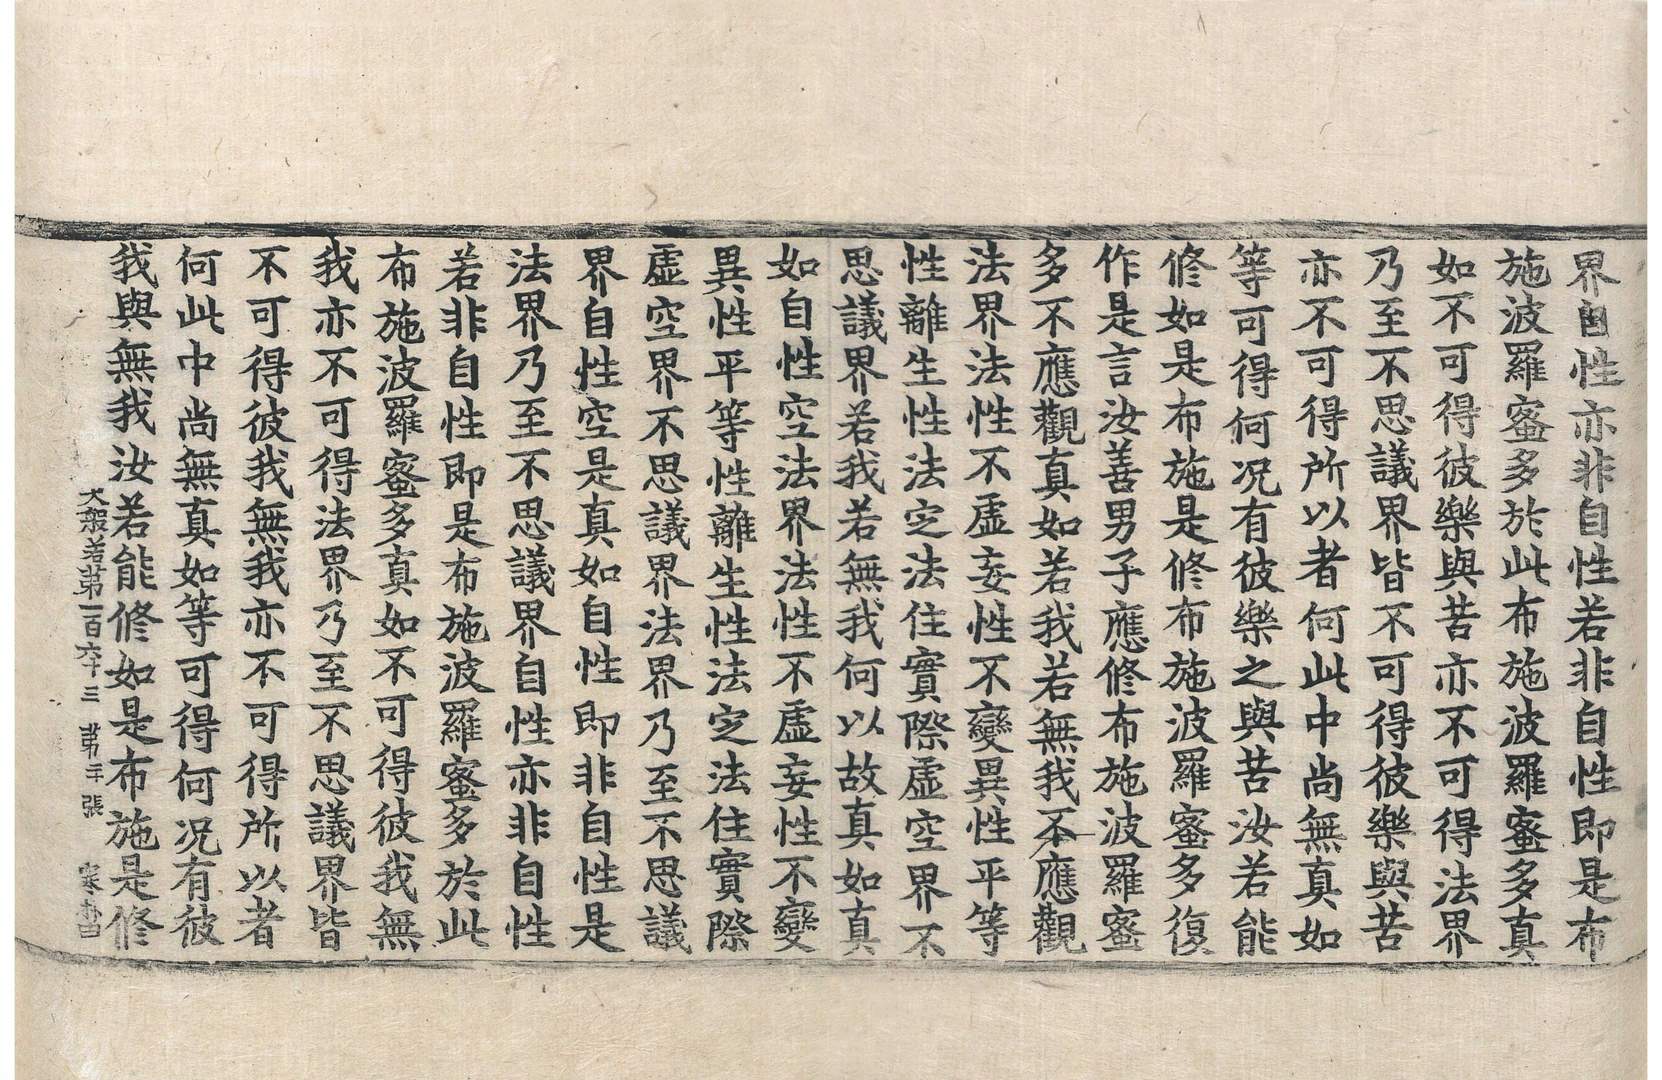 界自性亦非自性若非自性即是布
施波羅蜜多於此布施波羅蜜多真
如不可得彼樂與苦亦不可得法界
乃至不思議界皆不可得彼樂與苦
亦不可得所以者何此中尚無真如
等可得何况有彼樂之與苦汝若能
修如是布施是修布施波羅蜜多復
作是言汝善男子應修布施波羅蜜
多不應觀真如若我若無我不應觀
法界法性不虛妄性不變異性平等
性離生性法定法住實際虛空界不
思議界若我若無我何以故真如真
如自性空法界法性不虛妄性不變
異性平等性離生性法定法住實際
虛空界不思議界法界乃至不思議
界自性空是真如自性即非自性是
法界乃至不思議界自性亦非自性
若非自性即是布施波羅蜜多於此
布施波羅蜜多真如不可得彼我無
我亦不可得法界乃至不思議界皆
不可得彼我無我亦不可得所以者
何此中尚無真如等可得何况有彼
我與無我汝若能修如是布施是修
大般若第一百六十三 第二十張